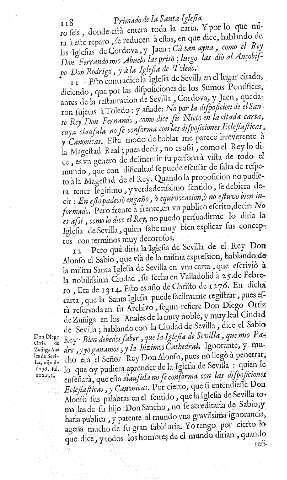 118 Primado de la Santa Iglesia
ro seis, donde està entera toda la carta. Y por lo que mi-
ra à este reparo, se reducen à estas, en que dice, hablando de
las Iglesias de Cordova, y Jaen: Cà tan ayna, como el Rey
Don Fernando mio Abuelo las priso; luego las diò al Arçobis-
po Don Rodrigo, y à la Iglesia de Toledo.
11 Esto contradice la Iglesia de Sevilla en el lugar citado,
diciendo, que por las disposiciones de los Sumos Pontifices,
antes de la restauracion de Sevilla, Cordova, y Jaen, queda-
ron sujetas à Toledo: y añade: No por la disposicion de el San-
to Rey Don Fernando, como dice su Nieto en la citada carta,
cuya clausula no se conforma con las disposiciones Eclesiasticas,
y Canonicas. Este modo de hablar me parece irreverente à
la Magestad Real; pues decir, no es assi, como el Rey lo di-
ce, es un genero de desmentir su persona à vista de todo el
mundo, que con dificultad se puede escusar de falta de respe-
to à la Magestad de el Rey. Quando la proposicion no pudie-
ra tener legitimo, y verdadero sentido, se debiera de-
cir: En esto padeciò engaño, ò equivocacion, ò no estuvo bien in-
formado. Pero frente à frente, en un publico escrito, decir: No
es assi, como lo dice el Rey, no puedo persuadirme lo diria la
Iglesia de Sevilla, quien sabe muy bien explicar sus concep-
tos con terminos muy decorosos.
12 Pero què diria la Iglesia de Sevilla de el Rey Don
Alonso el Sabio, que vià de la misma expression, hablando de
la misma Santa Iglesia de Sevilla en una carta, que escriviò à
la nobilissima Ciudad, su fecha en Valladolid à 25 de Febre-
ro, Era de 1314. Año es año de Christo de 1276. En dicha
carta, que la Santa Iglesia puede facilmente registrar, pues es-
tà reservada en su Archivo, segun refiere Don Diego Ortiz
Don Diego
Ortiz de
Zuñiga Anales de Sevilla,
de Zuñiga en los Anales de la muy noble, y muy leal Ciudad
de Sevilla; hablando con la Ciudad de Sevilla, dice el Sabio
Rey: Bien debedes saber, que la Iglesia de Sevilla, que mio Pa-
dre, y yo ganamos, y la hizimos Cathedral. Ignorante, y mu-
cho en el Señor Rey Don Alonso, pues no llegò à penetrar,
lo que oy pudiera aprender de la Iglesia de Sevilla: quien se
enseñara, que esta clausula no se conforma con las disposiciones
Eclesiasticas, y Canonicas. Por cierto, que si entendiesse Don
Alonso sus palabras en el sentido, que la Iglesia de Sevilla to-
ma las de su hijo Don Sancho, no se acreditaria de Sabio, y
haria publica, y patente al mundo una gravissima ignorancia,
agena mucho de su gran sabiduria. Yo tengo por cierto lo
que dice, y todos los hombres de el mundo diràn, quando